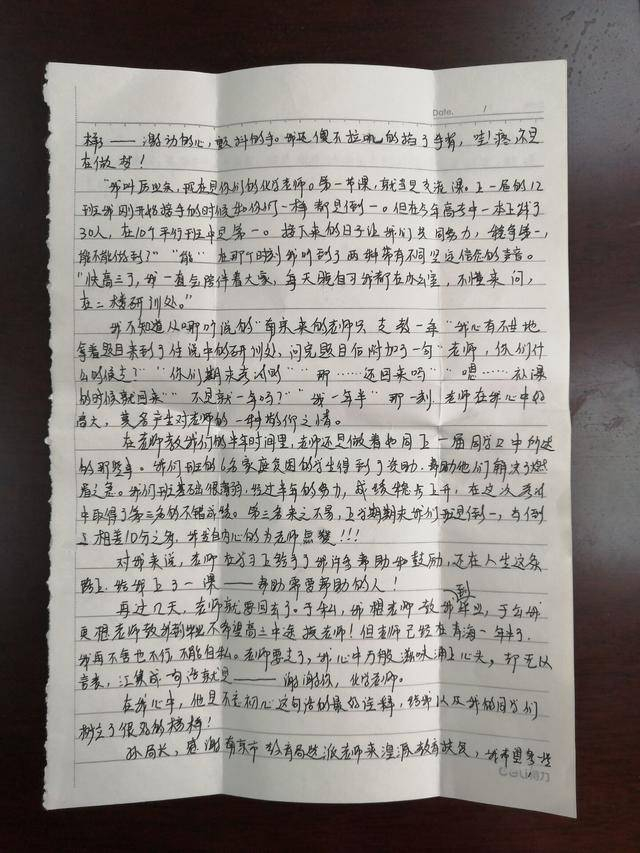 Date.    /
样——激动的心,颤抖的手。我还傻不拉叽的掐了手背,哇!疼不是
在做梦!
"我叫,现在是你们的化学老师。第一节课,就当是交流课。上一届的12
班我刚开始接手的时候和你们一样都是倒一。但在今年高考中一本上线了
30人,在10个平行班中是第一。接下来的日子让我们共同努力,争第一,
能不能做到?""能"在那个时刻我听到了两种带有不同坚定信念的声音。
"快高三了,我一直会陪伴着大家,每天晚自习我都在办公室,不懂来问,
在二楼研训处。"
我不知道从哪听说的"南京来的老师只支教一年"我心有不甘地
拿着题目来到了传说中的研训处,问完题目后附加了一句"老师,你们什
么时候走?""你们期末考试时""那……还回来吗""嗯……补课
的时候就回来""不是就一年吗?""我一年半"那一刻,老师在我心中好
高大,莫名产生对老师的一种敬仰之情。
在老师教我们的半年时间里,老师还是做着如同上一届同学口中所述
的那些事。我们班的6名家庭贫困的学生得到了资助,帮助他们解决了燃
眉之急。我们班基础很薄弱,经过半年的努力,成绩稳步上升,在这次考试
中取得了第三名的不错成绩。第三名来之不易,上学期期末我们班是倒一,与倒
二相差10分之多,我发自内心的为老师点赞!!!
对我来说,老师在学习上给予了我许多帮助和鼓励,还在人生这条
路上给我上了一课——帮助需要帮助的人!
再过几天,老师就要回去了。于私,我想老师教我到毕业,于公我
更想老师教我到毕业不希望高三中途换老师!但老师已经在青海一年半了,
我再不舍也不行,不能自私。老师要走了,我心中万般滋味涌上心头,却无以
言表,汇集成一句话就是——谢谢您,化学老师。
在我心中,他是不忘初心这句话的最好诠释,给我以及我的同学们
树立了很好的榜样!
孙局长,感谢南京市教育局选派老师来湟源教育扶贫,我希望多一些
deli得力